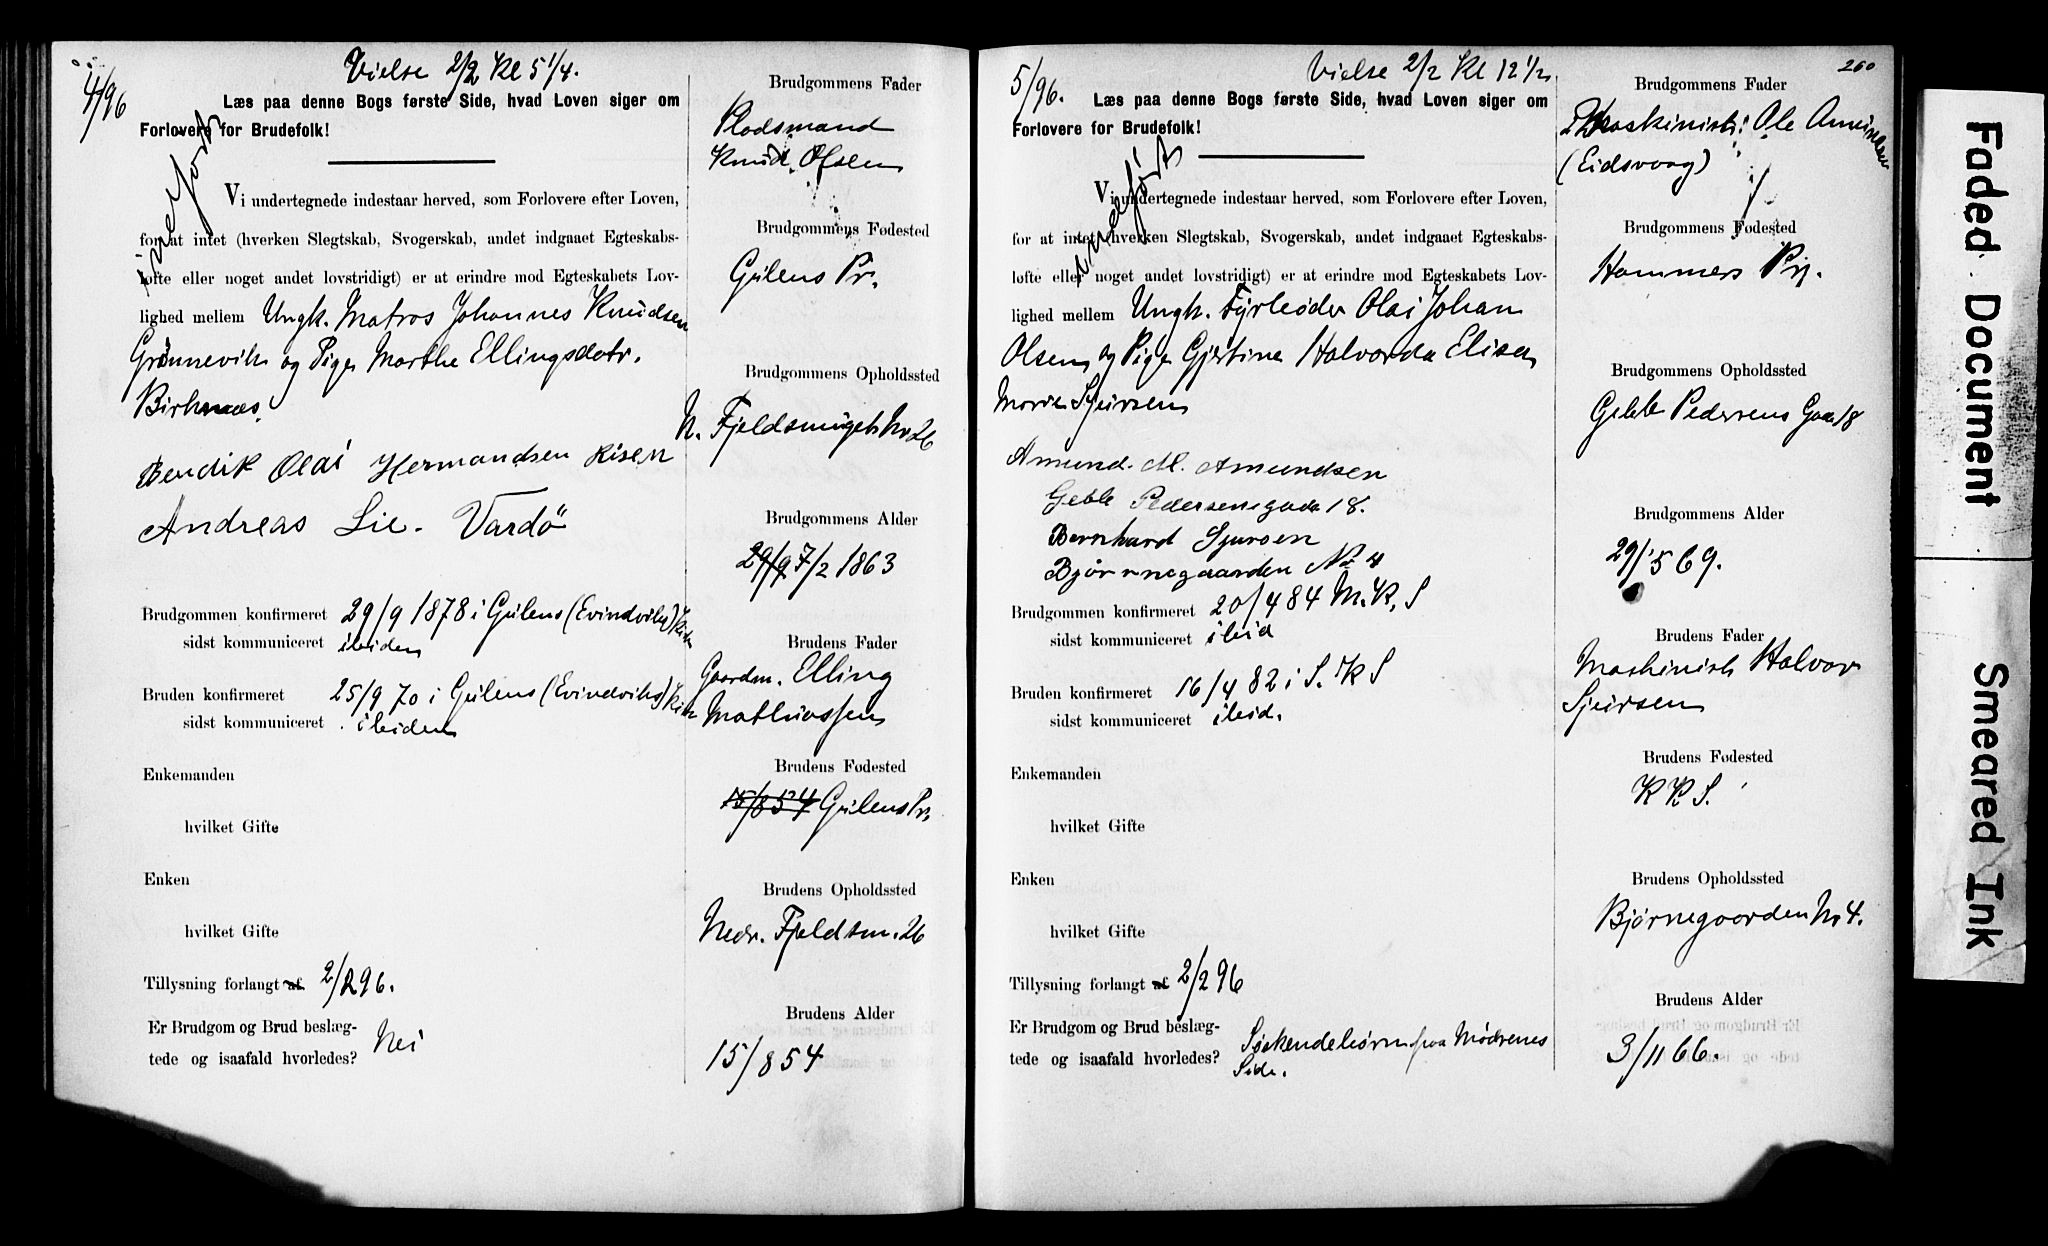 4/96
Vielse 2/2 Kl 5 1/4.
Læs paa denne Bogs første Side, hvad Loven siger om
Forlovere for Brudefolk!
indført
Vi undertegnede indestaar herved, som Forlovere efter Loven,
for at intet (hverken Slegtskab, Svogerskab, andet indgaaet Egteskabs-
løfte eller noget andet lovstridigt) er at erindre mod Egteskabets Lov-
lighed mellem Ungk. Matros Johannes Knudsen
Grønnevik og Pige Marthe Ellingsdotr.
Birknæs.
Bendik Olai Hermandsen Risen
Andreas Lie. Vardö
Brudgommen konfirmeret 29/9 1878 i Gulens (Evindviks) Kirke
sidst kommuniceret ibiden
Bruden konfirmeret 25/9 70 i Gulens (Evindviks) Kirke
sidst kommuniceret ibiden
Enkemanden
hvilket Gifte
Enken
hvilket Gifte
Tillysning forlangt af 2/2 96.
Er Brudgom og Brud beslæg-
tede og isaafald hvorledes? Nei
Brudgommens Fader
Pladsmand
Knud Olsen
Brudgommens Fødested
Gulens Pr.
Brudgommens Opholdssted
N. Fjeldsmuget Nr 26
Brudgommens Alder
29/9 7/2 1863
Brudens Fader
Gaardm. Elling
Mathiassen
Brudens Fødested
15/8 54 Gulens Pr.
Brudens Opholdssted
Nedr. Fjeldsm. 26
Brudens Alder
15/8 54
5/96.
Vielse 2/2 Kl 12 1/2.
Læs paa denne Bogs første Side, hvad Loven siger om
Forlovere for Brudefolk!
indført
Vi undertegnede indestaar herved, som Forlovere efter Loven,
for at intet (hverken Slegtskab, Svogerskab, andet indgaaet Egteskabs-
løfte eller noget andet lovstridigt) er at erindre mod Egteskabets Lov-
lighed mellem Ungk. Fyrbøder Olai Johan
Olsen og Pige Gjertine Halvarda Elisa
Marie Sjursen
Amund. M. Amundsen
Geble Pedersensgade 18.
Bernhard Sjursen
Bjørnnegaarden No 4
Brudgommen konfirmeret 20/4 84 M. K. S
sidst kommuniceret ibid
Bruden konfirmeret 16/4 82 i S. K S
sidst kommuniceret ibid.
Enkemanden
hvilket Gifte
Enken
hvilket Gifte
Tillysning forlangt af 2/2 96
Er Brudgom og Brud beslæg-
tede og isaafald hvorledes? Søskendebørn paa Mødrenes
Side.
260
Brudgommens Fader
Maskinist Ole
(Eidsvaag)
Brudgommens Fødested
Hammers Prj.
Brudgommens Opholdssted
Geble Pedersens Gade 18
Brudgommens Alder
29/5 69.
Brudens Fader
Maskinist Halvor
Sjursen
Brudens Fødested
K K S.
Brudens Opholdssted
Bjørnegaarden Nr 4.
Brudens Alder
3/11 66.
Faded Document
Smeared Ink